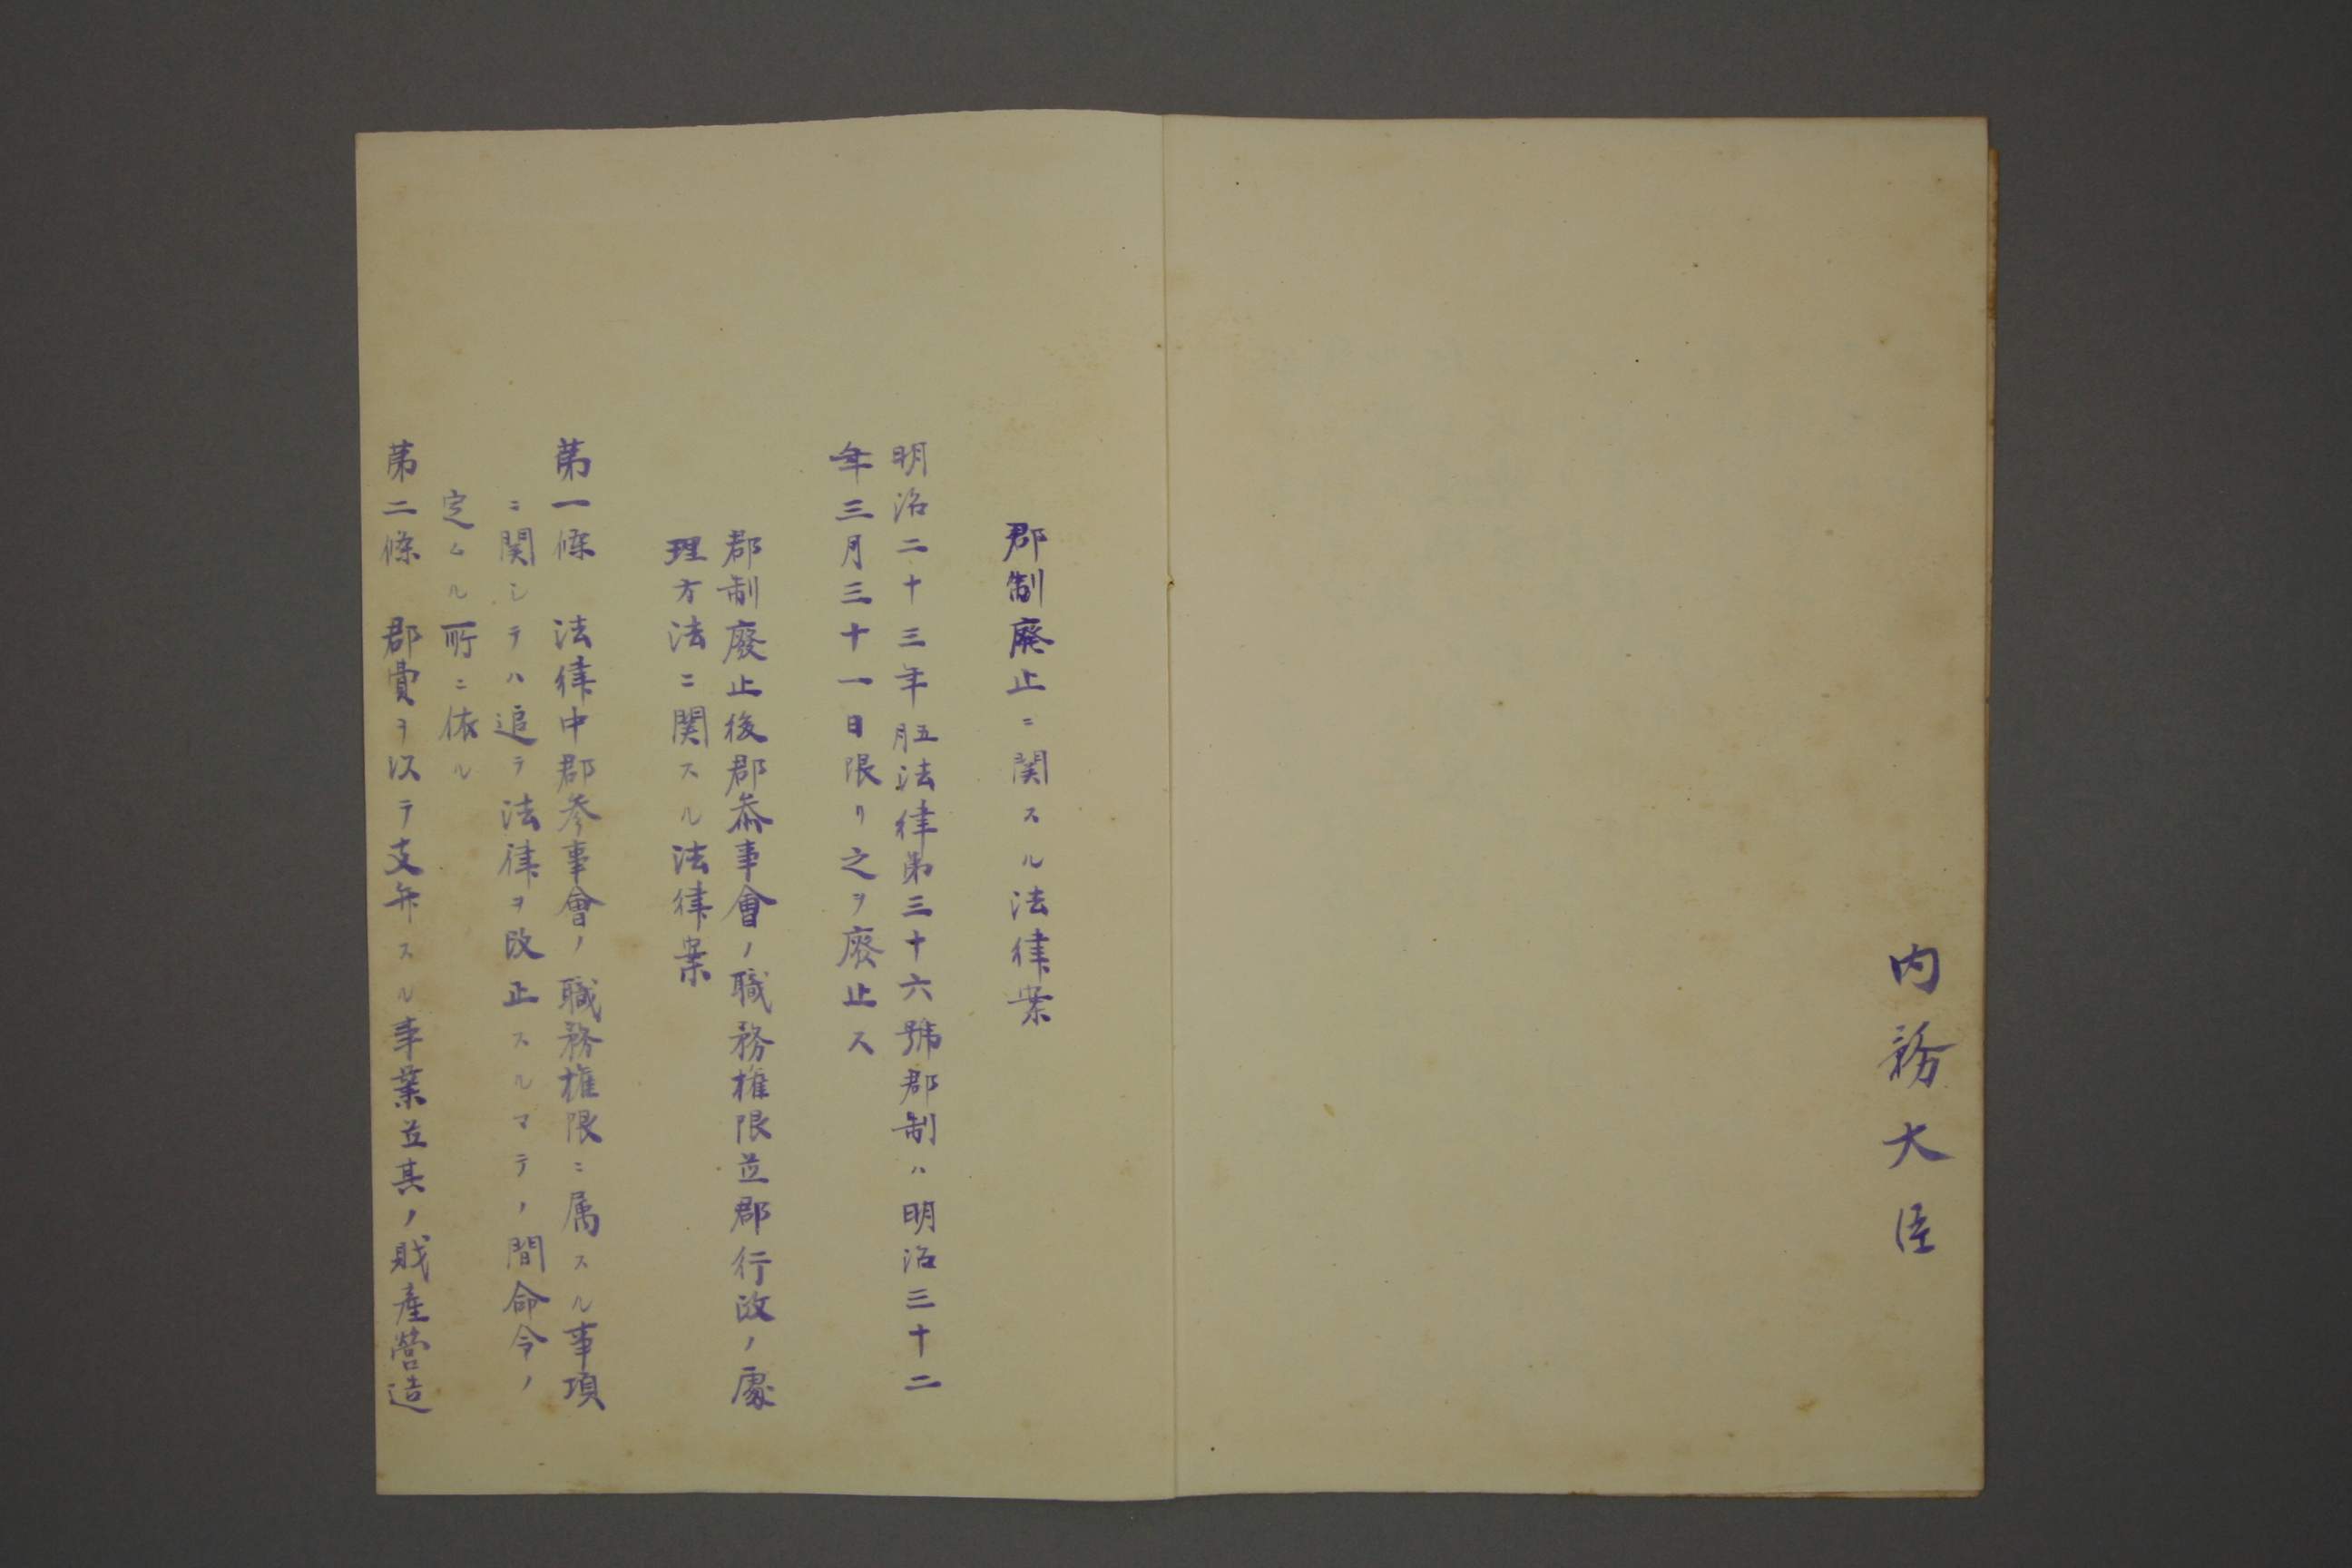 内務大臣
郡制廢止ニ関スル法律案
明治二十三年五月法律第三十六號郡制ハ明治三十二
年三月三十一日限リ之ヲ廢止ス
郡制廢止後郡参事會ノ職務権限並郡行政ノ處
理方法ニ関スル法律案
第一條　法律中郡参事會ノ職務権限ニ属スル事項
ニ関シテハ追テ法律ヲ改正スルマテノ間命令ノ
定ムル所ニ依ル
第二條　郡費ヲ以テ支弁スル事業並其ノ財産営造